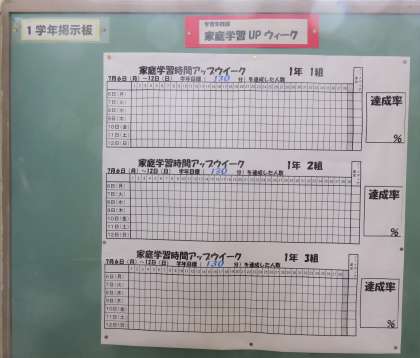 1学年掲示板
学習委員会
家庭学習UPウィーク
家庭学習時間アップウイーク 1年 1組
7月6日(月)~12日(日) 学年目標( 130 分)を達成した人数
6日(月)
7日(火)
8日(水)
9日(木)
10日(金)
11日(土)
12日(日)
達成率
%
家庭学習時間アップウイーク 1年 2組
7月6日(月)~12日(日) 学年目標( 130 分)を達成した人数
6日(月)
7日(火)
8日(水)
9日(木)
10日(金)
11日(土)
12日(日)
達成率
%
家庭学習時間アップウイーク 1年 3組
7月6日(月)~12日(日) 学年目標( 130 分)を達成した人数
6日(月)
7日(火)
8日(水)
9日(木)
10日(金)
11日(土)
12日(日)
達成率
%